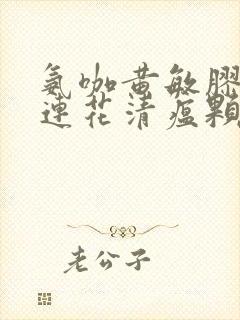 氨咖黄敏胶
连花清瘟颗
老公子